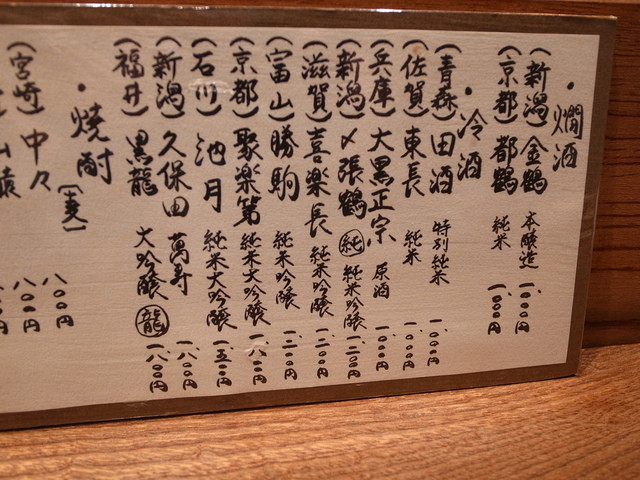 ・燗酒
(新潟) 金鶴 本醸造 一、〇〇〇円
(京都) 都鶴 純米 一、〇〇〇円
・冷酒
(青森) 田酒 特別純米 一、〇〇〇円
(佐賀) 東長 純米 一、〇〇〇円
(兵庫) 大黒正宗 原酒 一、〇〇〇円
(新潟) 〆張鶴 純 純米吟醸 一、二〇〇円
(滋賀) 喜楽長 純米吟醸 一、二〇〇円
(富山) 勝駒 純米吟醸
(京都) 聚楽第 純米大吟醸 一、八〇〇円
(石川) 池月 純米大吟醸 一、五〇〇円
(新潟) 久保田 萬寿 一、八〇〇円
(福井) 黒龍 大吟醸 龍 一、八〇〇円
・焼酎 (麦) 八〇〇円
(宮崎) 中々 八〇〇円